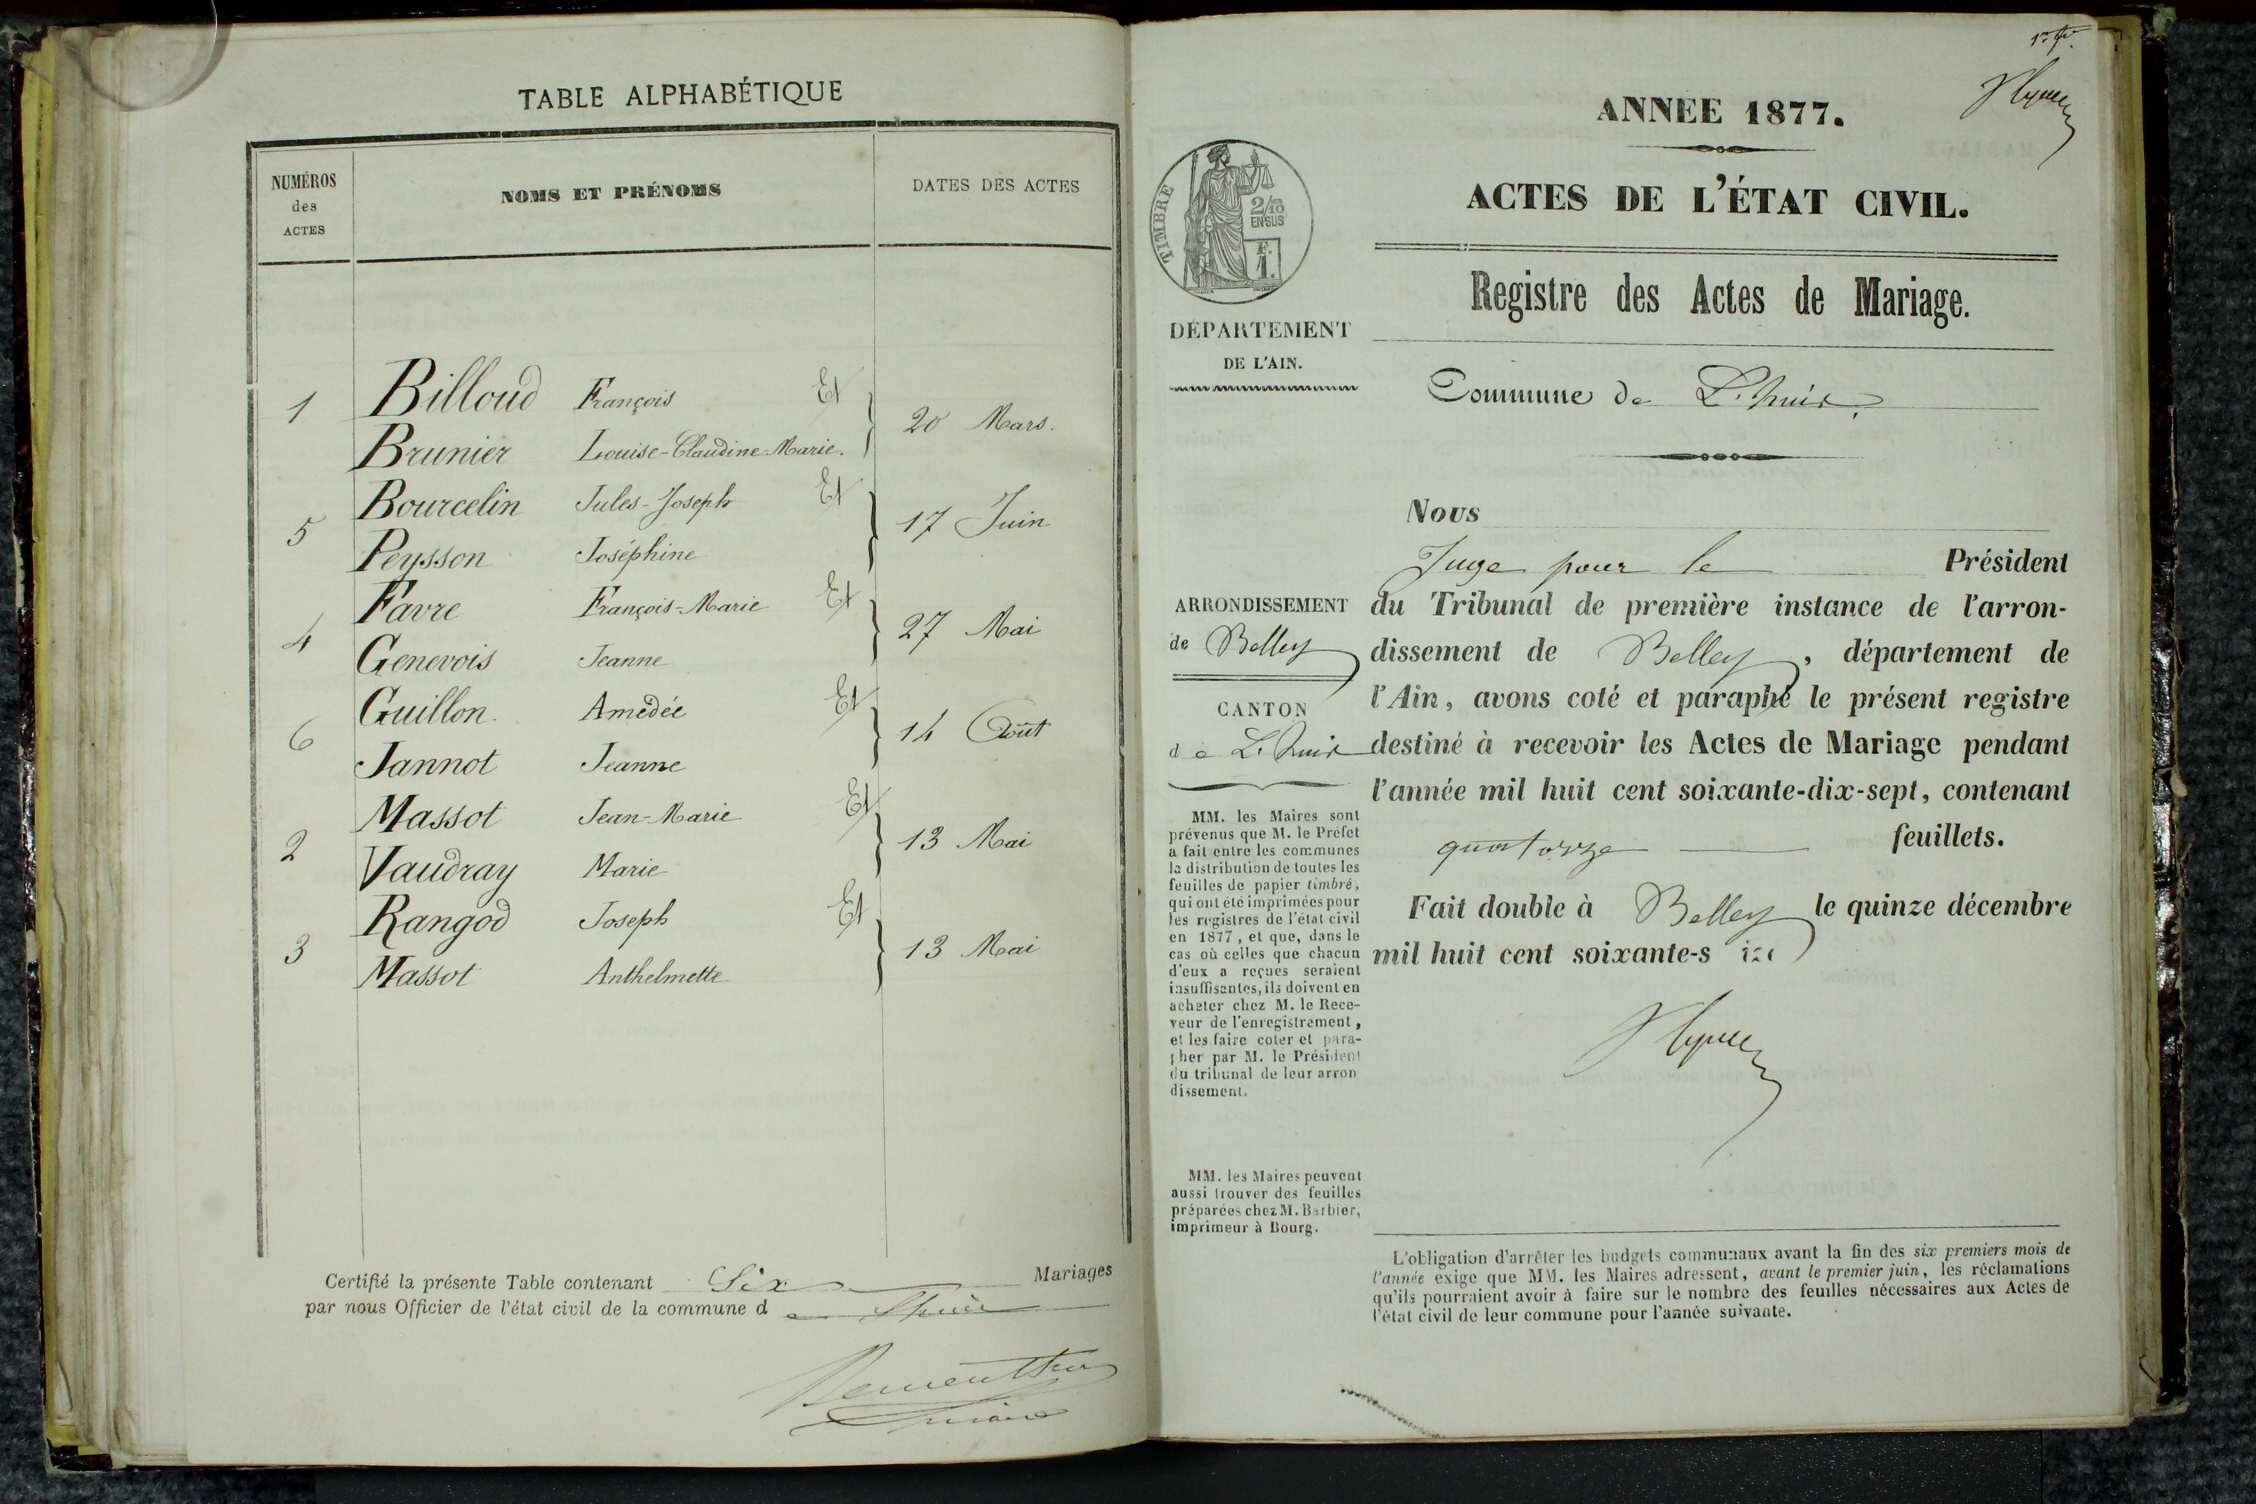 TABLE ALPHABÉTIQUE
NUMÉROS
des
ACTES
NOMS ET PRÉNOMS
DATES DES ACTES
1
Billoud François Et
20 Mars.
Brunier Louise-Claudine-Marie.
5
Bourcelin Jules-Joseph Et
17 Juin
Peysson Joséphine
4
Favre François-Marie Et
27 Mai
Genevois Jeanne
6
Guillon Amédée Et
14 Août
Jannot Jeanne
2
Massot Jean-Marie Et
13 Mai
Vaudray Marie
3
Rangod Joseph Et
13 Mai
Massot Anthelmette
Certifié la présente Table contenant Six Mariages
par nous Officier de l'état civil de la commune de Lhuis
ANNÉE 1877.
ACTES DE L'ÉTAT CIVIL.
TIMBRE
2/10
EN SUS
F.
1.
Registre des Actes de Mariage.
DÉPARTEMENT
DE L'AIN.
Commune de L'huis.
Nous
Juge pour le Président
ARRONDISSEMENT
de Belley
CANTON
de L'huis
du Tribunal de première instance de l'arron-
dissement de Belley, département de
l'Ain, avons coté et paraphé le présent registre
destiné à recevoir les Actes de Mariage pendant
l'année mil huit cent soixante-dix-sept, contenant
quatorze feuillets.
Fait double à Belley le quinze décembre
mil huit cent soixante-seize
MM. les Maires sont
prévenus que M. le Préfet
a fait entre les communes
la distribution de toutes les
feuilles de papier timbré,
qui ont été imprimées pour
les registres de l'état civil
en 1877, et que, dans le
cas où celles que chacun
d'eux a reçues seraient
insuffisantes, ils doivent en
acheter chez M. le Rece-
veur de l'enregistrement,
et les faire coter et para-
pher par M. le Président
du tribunal de leur arron
dissement.
MM. les Maires peuvent
aussi trouver des feuilles
préparées chez M. Barbier,
imprimeur à Bourg.
L'obligation d'arrêter les budgets communaux avant la fin des six premiers mois de
l'année exige que MM. les Maires adressent, avant le premier juin, les réclamations
qu'ils pourraient avoir à faire sur le nombre des feuilles nécessaires aux Actes de
l'état civil de leur commune pour l'année suivante.